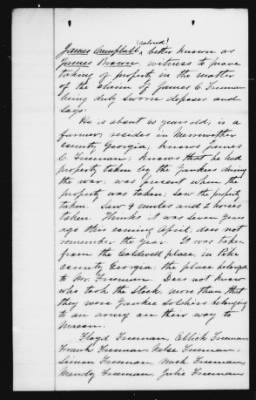 (colored)
James Campbell, better known as
James Brown, witness to prove
taking of property in the matter
of the claim of James C. Freeman
being duly sworn deposes and
says:
He is about 45 years old; is a
farmer, resides in Merriwether
county, Georgia; knows James
C. Freeman; knows that he had
property taken by the Yankees during
the war; was present when the
property was taken; saw the property
taken. Saw 4 mules and 2 horses
taken. Thinks it was seven years
ago this coming April; does not
remember the year. It was taken
from the Caldwell place, in Pike
county Georgia, the place belongs
to Mr. Freeman. Does not know
who took the stock, more than that
they were Yankee soldiers belonging
to an army on their way to
Macon.
Floyd Freeman, Freeman
Frank Freeman, Freeman,
Simon Freeman, Freeman,
Mandy Freeman, Julie Freeman